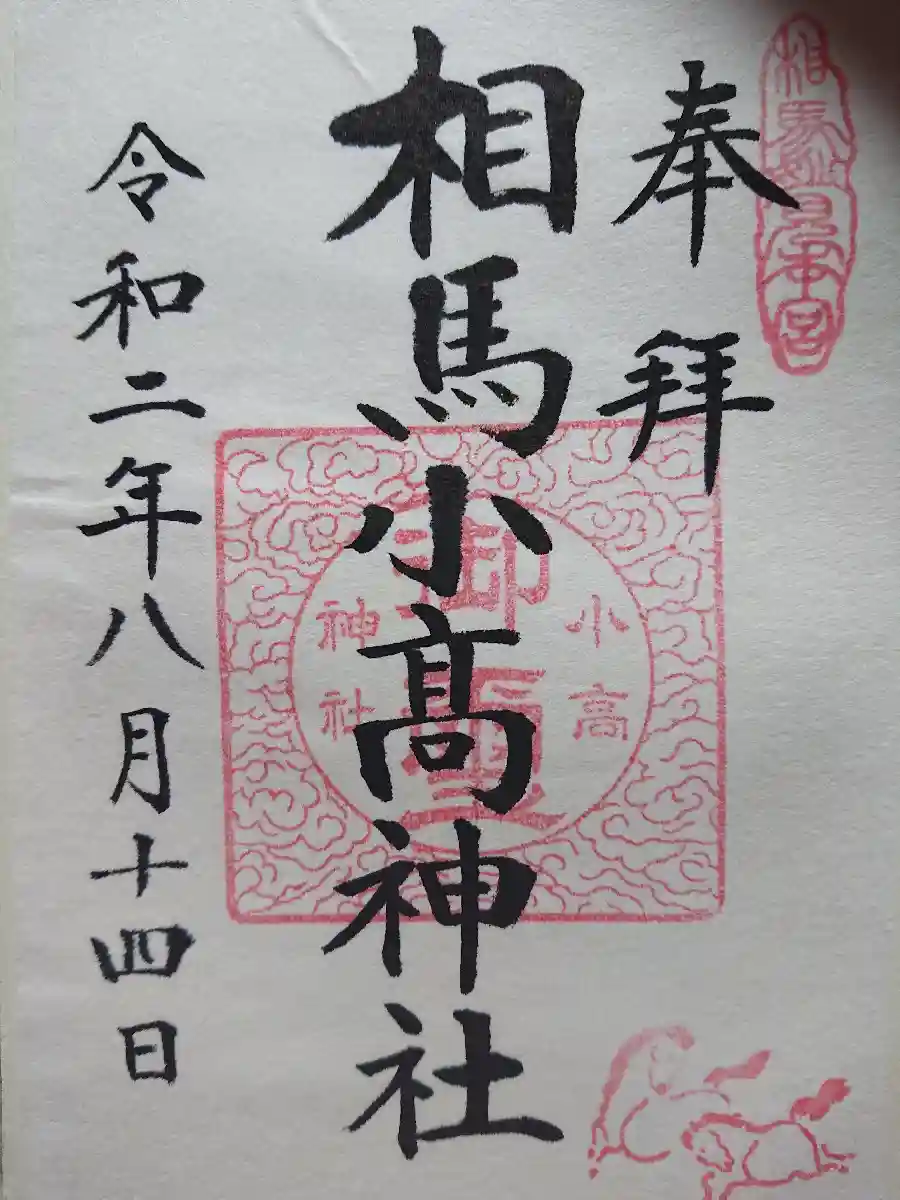 奉拝
相馬妙見本宮
相馬小髙神社
小高
御璽
神社
令和二年八月十四日